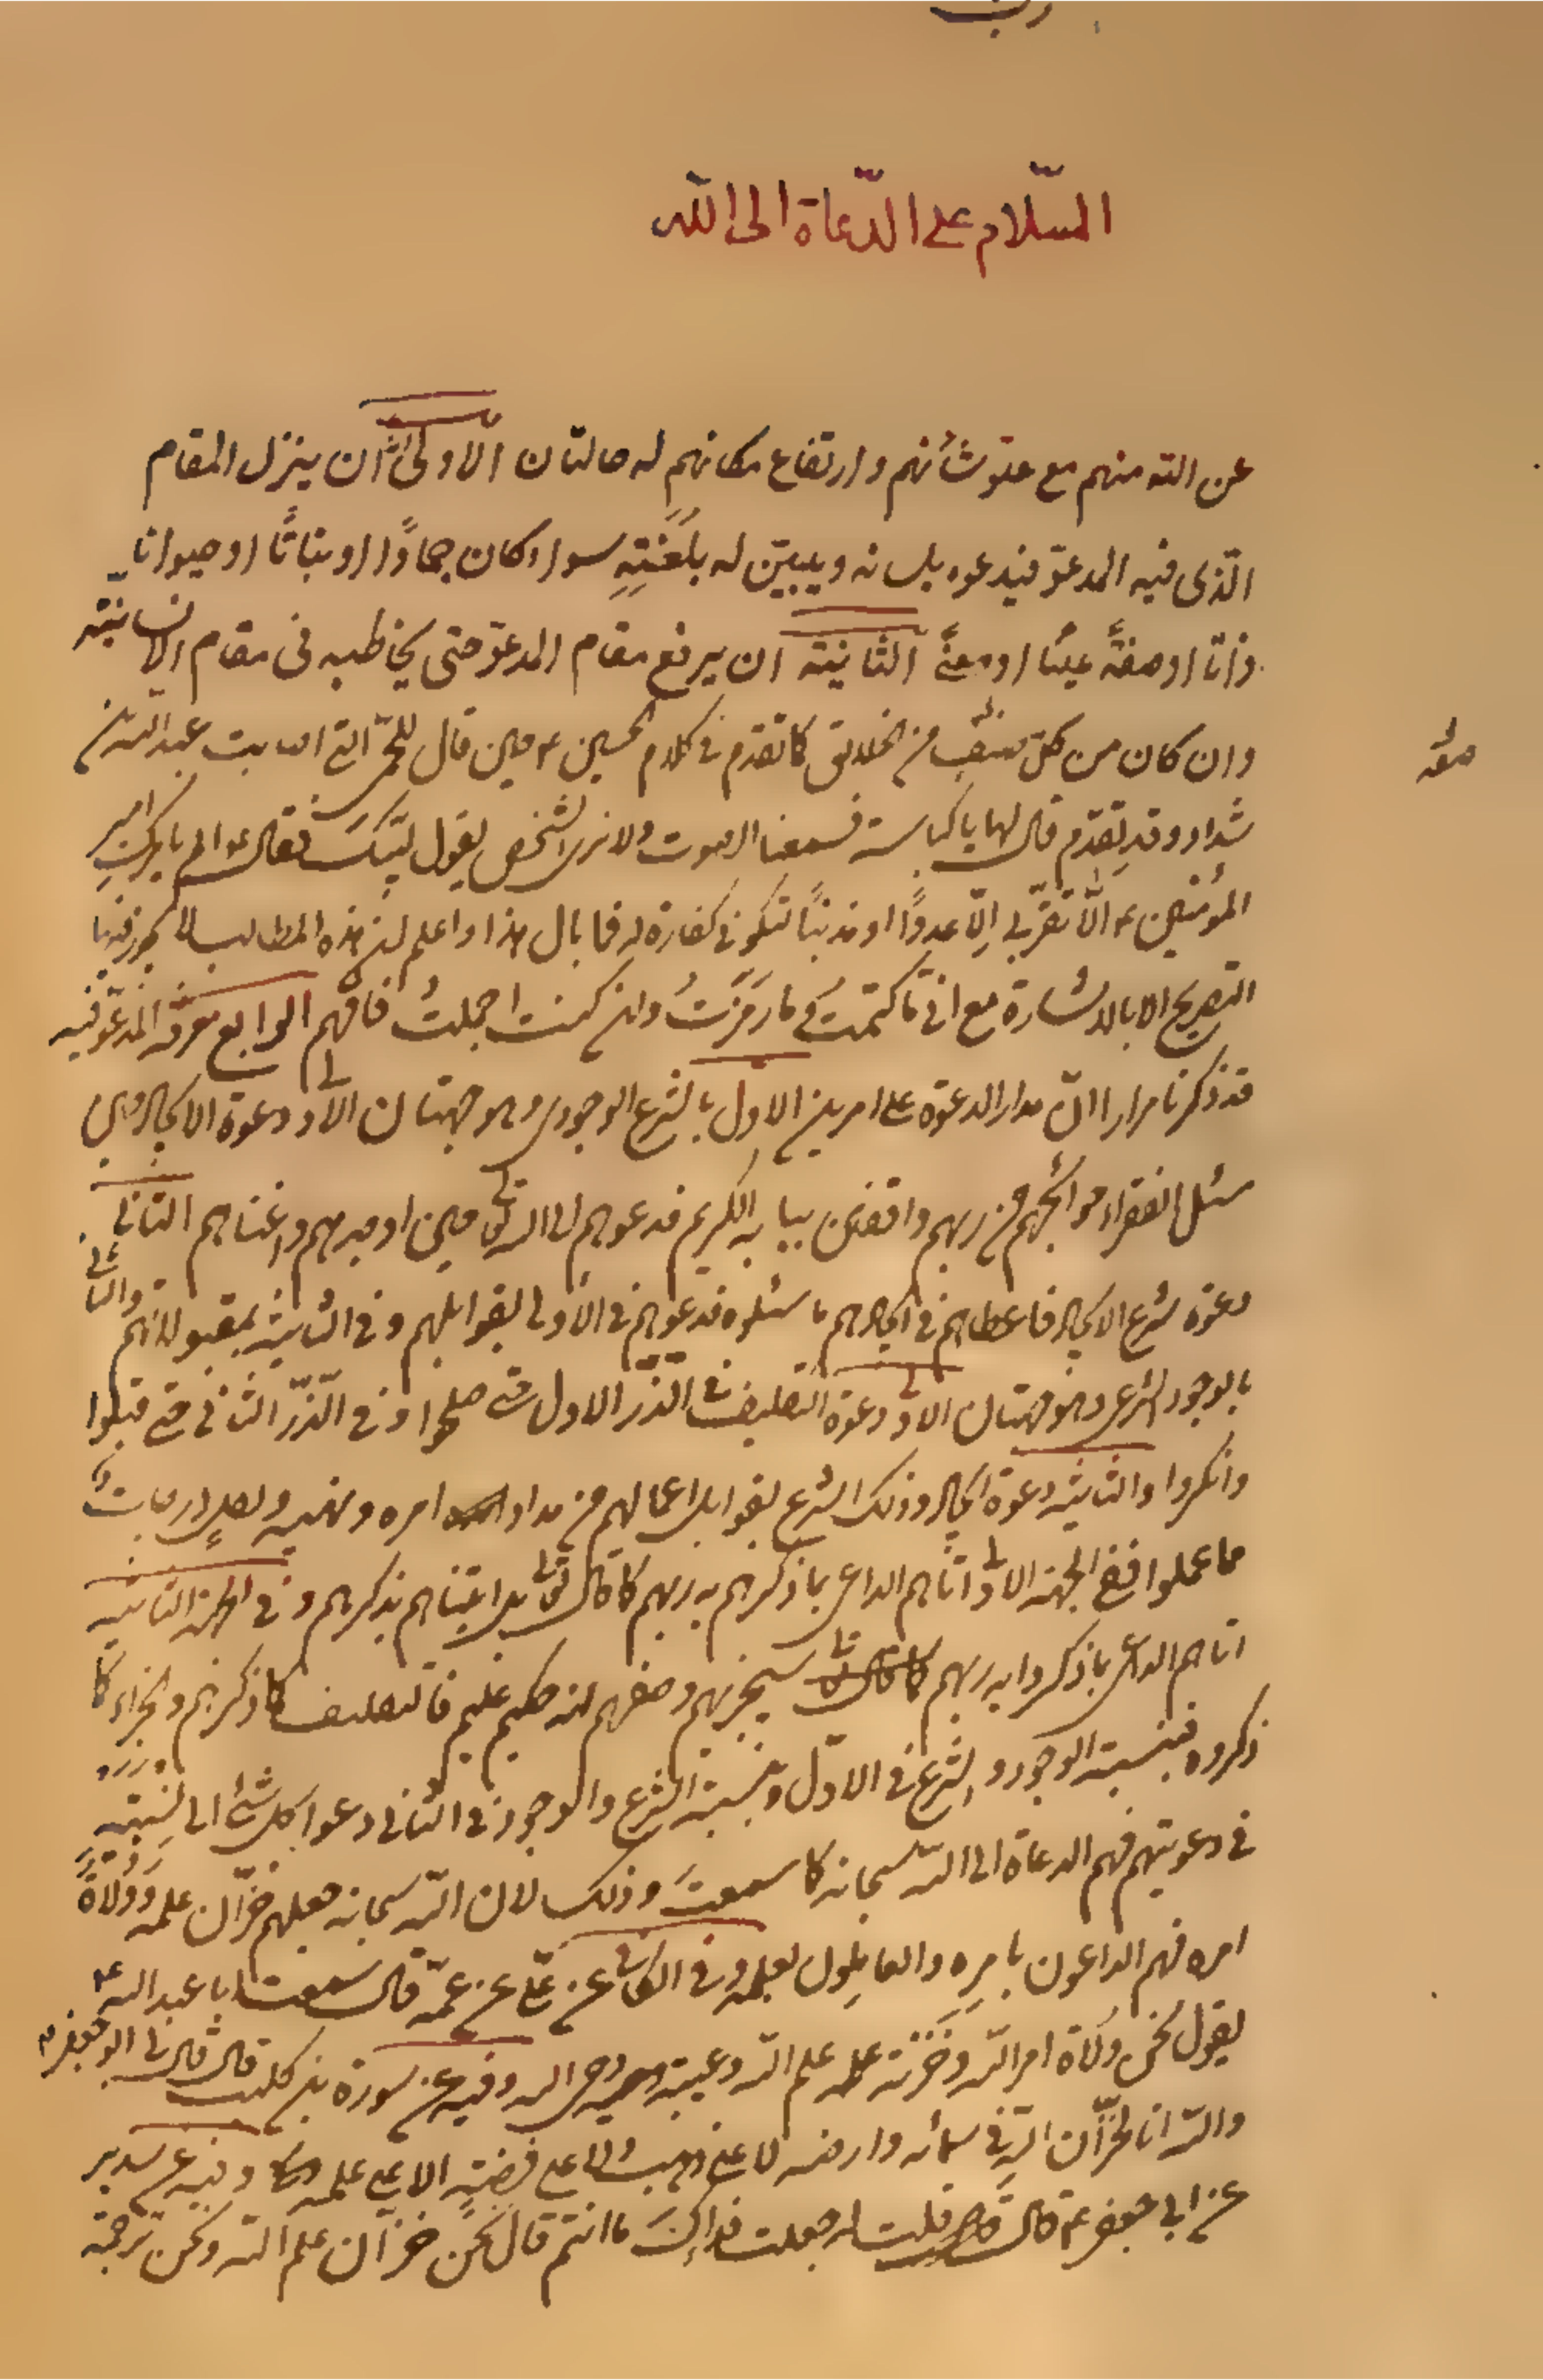 السّلام على الدّعاة الى الله
عن الله منهم مع علوّ شأنهم وارتفاع مكانهم له حالتان الاولى ان ينزل المقام
الّذى فيه المدعوّ فيدعوه بلسانه ويبيّن له بلُغَتِهِ سواء كان جماداً او نباتاً او حيوانا
ذاتا او صفةً عيناً او معنىً الثانية ان يرفع مقام المدعوّ حتى يخاطبه فى مقام الانسانيّة
وان كان من كلّ صنف من الخلائق كما تقدم فى كلام الحسين ع حين قال للحمّى التى اصابت عبد الله بن
شداد وقد تقدّم قال لها يا كباسة فسمعنا الصوت ولا نرى الشخص يقول لبّيك فقال ع الم يامركِ امير
المؤمنين ع الّا تقربى الّا عدوّاً او مذنباً لتكونى كفارة له فما بال هذا واعلم ان هذه المطالب لا يجوز فيها
التصريح الا بالاشارة مع انى ما كتمتُ فى ما رمَزتُ وان كنت اجملتُ فافهم الرابع معرفة المدعوّ فيه
قد ذكرنا مرارا انّ مدار الدعوة على امرين الاول بالشرع الوجودى وهو جهتان الاولى دعوة الايجاد حين
سئل الفقراء حوائجهم من ربهم واقفين ببابه الكريم فدعوهم الى الله تعالى حين اوجدهم واغناهم الثانى
دعوة شرع الايجاد فاعطاهم فى ايجادهم ما سئلوه فدعوهم فى الاولى لقوابلهم وفى الثانية بمقبولاتهم والثانى
بالوجود الشرعى وهو جهتان الاولى دعوة التكليف فى الذّر الاول حتى صلحوا وفى الذّرّ الثانى حتى قبلوا
وانكروا والثانية دعوة ايجاد وذلك الشرع لقوابل اعمالهم من مداد امره ونهيه ولكلٍ درجات
مما عملوا ففى الجهة الاولى اتاهم الداعى بما ذكرهم به ربهم كما قال تعالى بل اتيناهم بذكرهم وفى الجهة الثانية
اتاهم الداعى بما ذكروا به ربهم كما قال تعالى سيجزيهم وصفهم انه حكيم عليم فالتكليف كما ذكرهم والجزاء كما
ذكروه فبنسبة الوجود والشرع فى الاوّل وبنسبة الشرع والوجود فى الثانى دعوا كل شئ الى نسبته
فى دعوتهم فهم الدعاة الى الله سبحانه كما سمعتَ وذلك لان الله سبحانه جعلهم خزّان علمه وَوُلاةَ
امره فهم الداعون بامرِه والعاملون بعلمه وفى الكافى عن على عن عمّه قال سمعت ابا عبد الله ع
يقول نحن ولاة امر الله وخزنة علم الله وعيبة وحى الله وفيه عن سورة بن كليب قال قال لى ابو جعفر ع
والله انا لخزّان الله فى سمائه وارضه لا على ذهب ولا على فضةٍ الا على علمه وفيه عن سدير
عن ابى جعفر ع قال قلت له جعلت فداك ما انتم قال نحن خزّان علم الله ونحن تراجمة